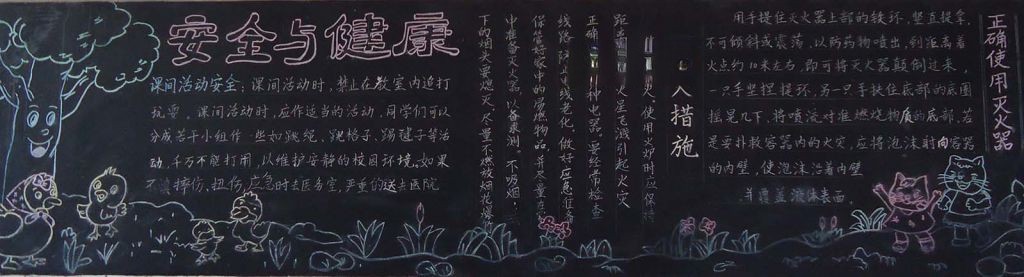 安全与健康
课间活动安全：课间活动时，禁止在教室内追打
扰耍。课间活动时，应作适当的活动，同学们可以
分成若干小组作一些如跳绳、跳格子、踢毽子等活
动，千万不能打闹，以维护安静的校园环境。如果
不慎摔伤、扭伤，应急时去医务室，严重的送去医院
入措施
火，使用火炉时应保持
距 火星飞溅引起火灾
正确 种电器，要经常检查
线路，防止线老化，做好应急准备
保管好家中的易燃物品，并尽量在
中准备灭火器，以备来测，不吸烟，
下的烟头要熄灭，尽量不燃放烟花爆
正确使用灭火器
用手提住灭火器上部的铁环，竖直提拿，
不可倾斜或震荡，以防药物喷出，到距离着
火点约10米左右，即可将灭火器颠倒过来，
一只手竖捏提环，另一只手扶住底部的底圈
摇晃几下，将喷流对准燃烧物质的底部，若
是要扑救容器内的火灾，应将泡沫射向容器
的内壁，使泡沫沿着内壁
并覆盖液体表面。